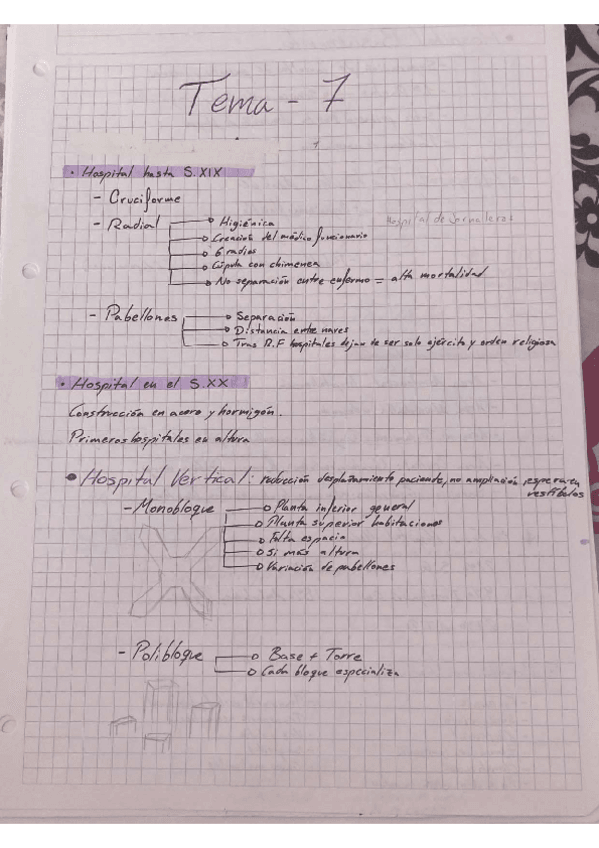 Tema - 7
• Hospital hasta S.XIX
- Cruciforme
- Radial
Higiénica
Hospital de Jornaleros
Creación del médico funcionario
6 radios
Cúpula con chimenea
No separación entre enfermo = alta mortalidad
- Pabellones
Separación
Distancia entre naves
Tras R.F hospitales dejan de ser solo ejército y orden religiosa
• Hospital en el S.XX
Construcción en acero y hormigón.
Primeros hospitales en altura
• Hospital Vertical: reducción desplazamiento paciente, no ampliación espera en
vestíbulos
- Monobloque
Planta inferior general
Planta superior habitaciones
Falta espacio
Si más altura
Variación de pabellones
- Polibloque
Base + Torre
Cada bloque especializa